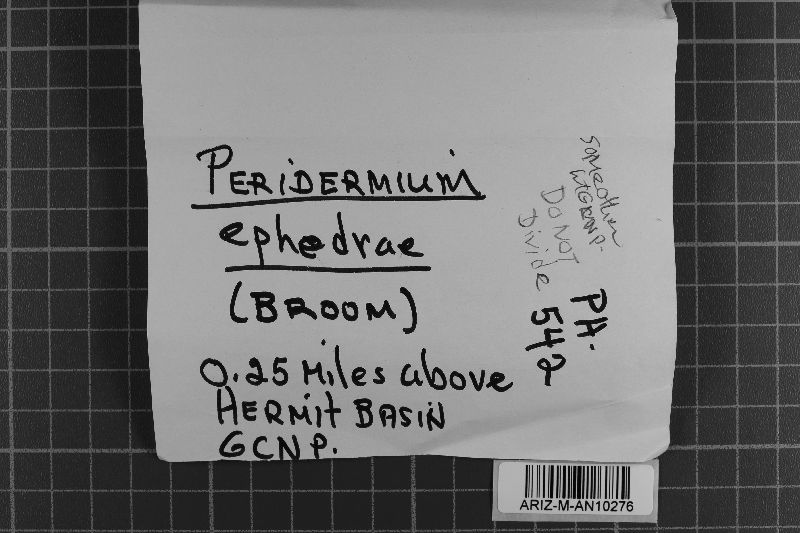 PERIDERMIUM
ephedrae
(BROOM)
0.25 Miles above
HERMIT BASIN
GCNP.
Some other
DO NOT
Divide
PH.
542
ARIZ-M-AN10276